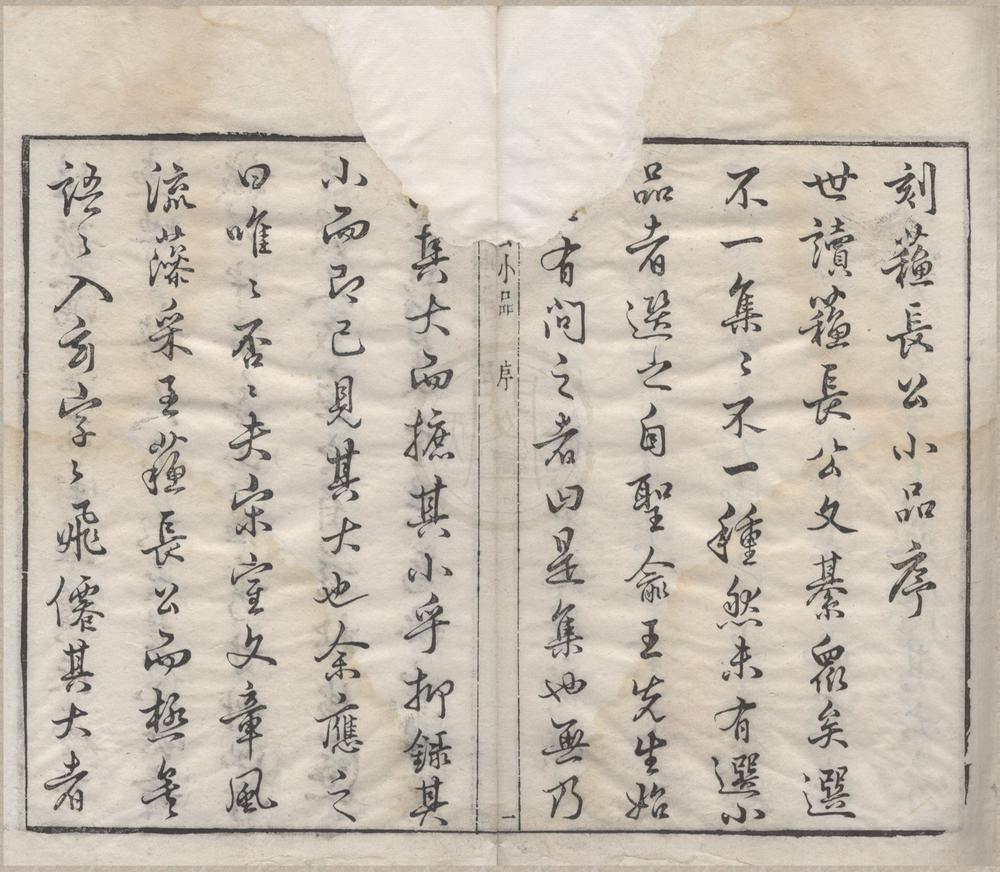 刻蘓長公小品序
世讀蘓長公文綦衆矣選
不一集〻不一種然未有選小
品者選之自聖俞王先生始
有問之者曰是集也無乃
其大而摭其小乎抑錄其
小而即已見其大也余應之
曰唯〻否〻夫宋室文章風
流藻采至蘓長公而極矣
語〻入玄字〻飛僊其大者
小品 序 一